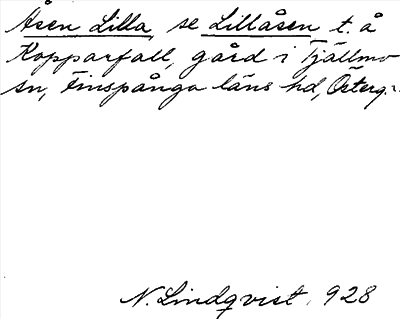 Åsen Lilla, se Lillåsen t. å
Kopparfall, gård i Tjällmo
sn, Finspånga läns hd, Österg.
N. Lindqvist. 928